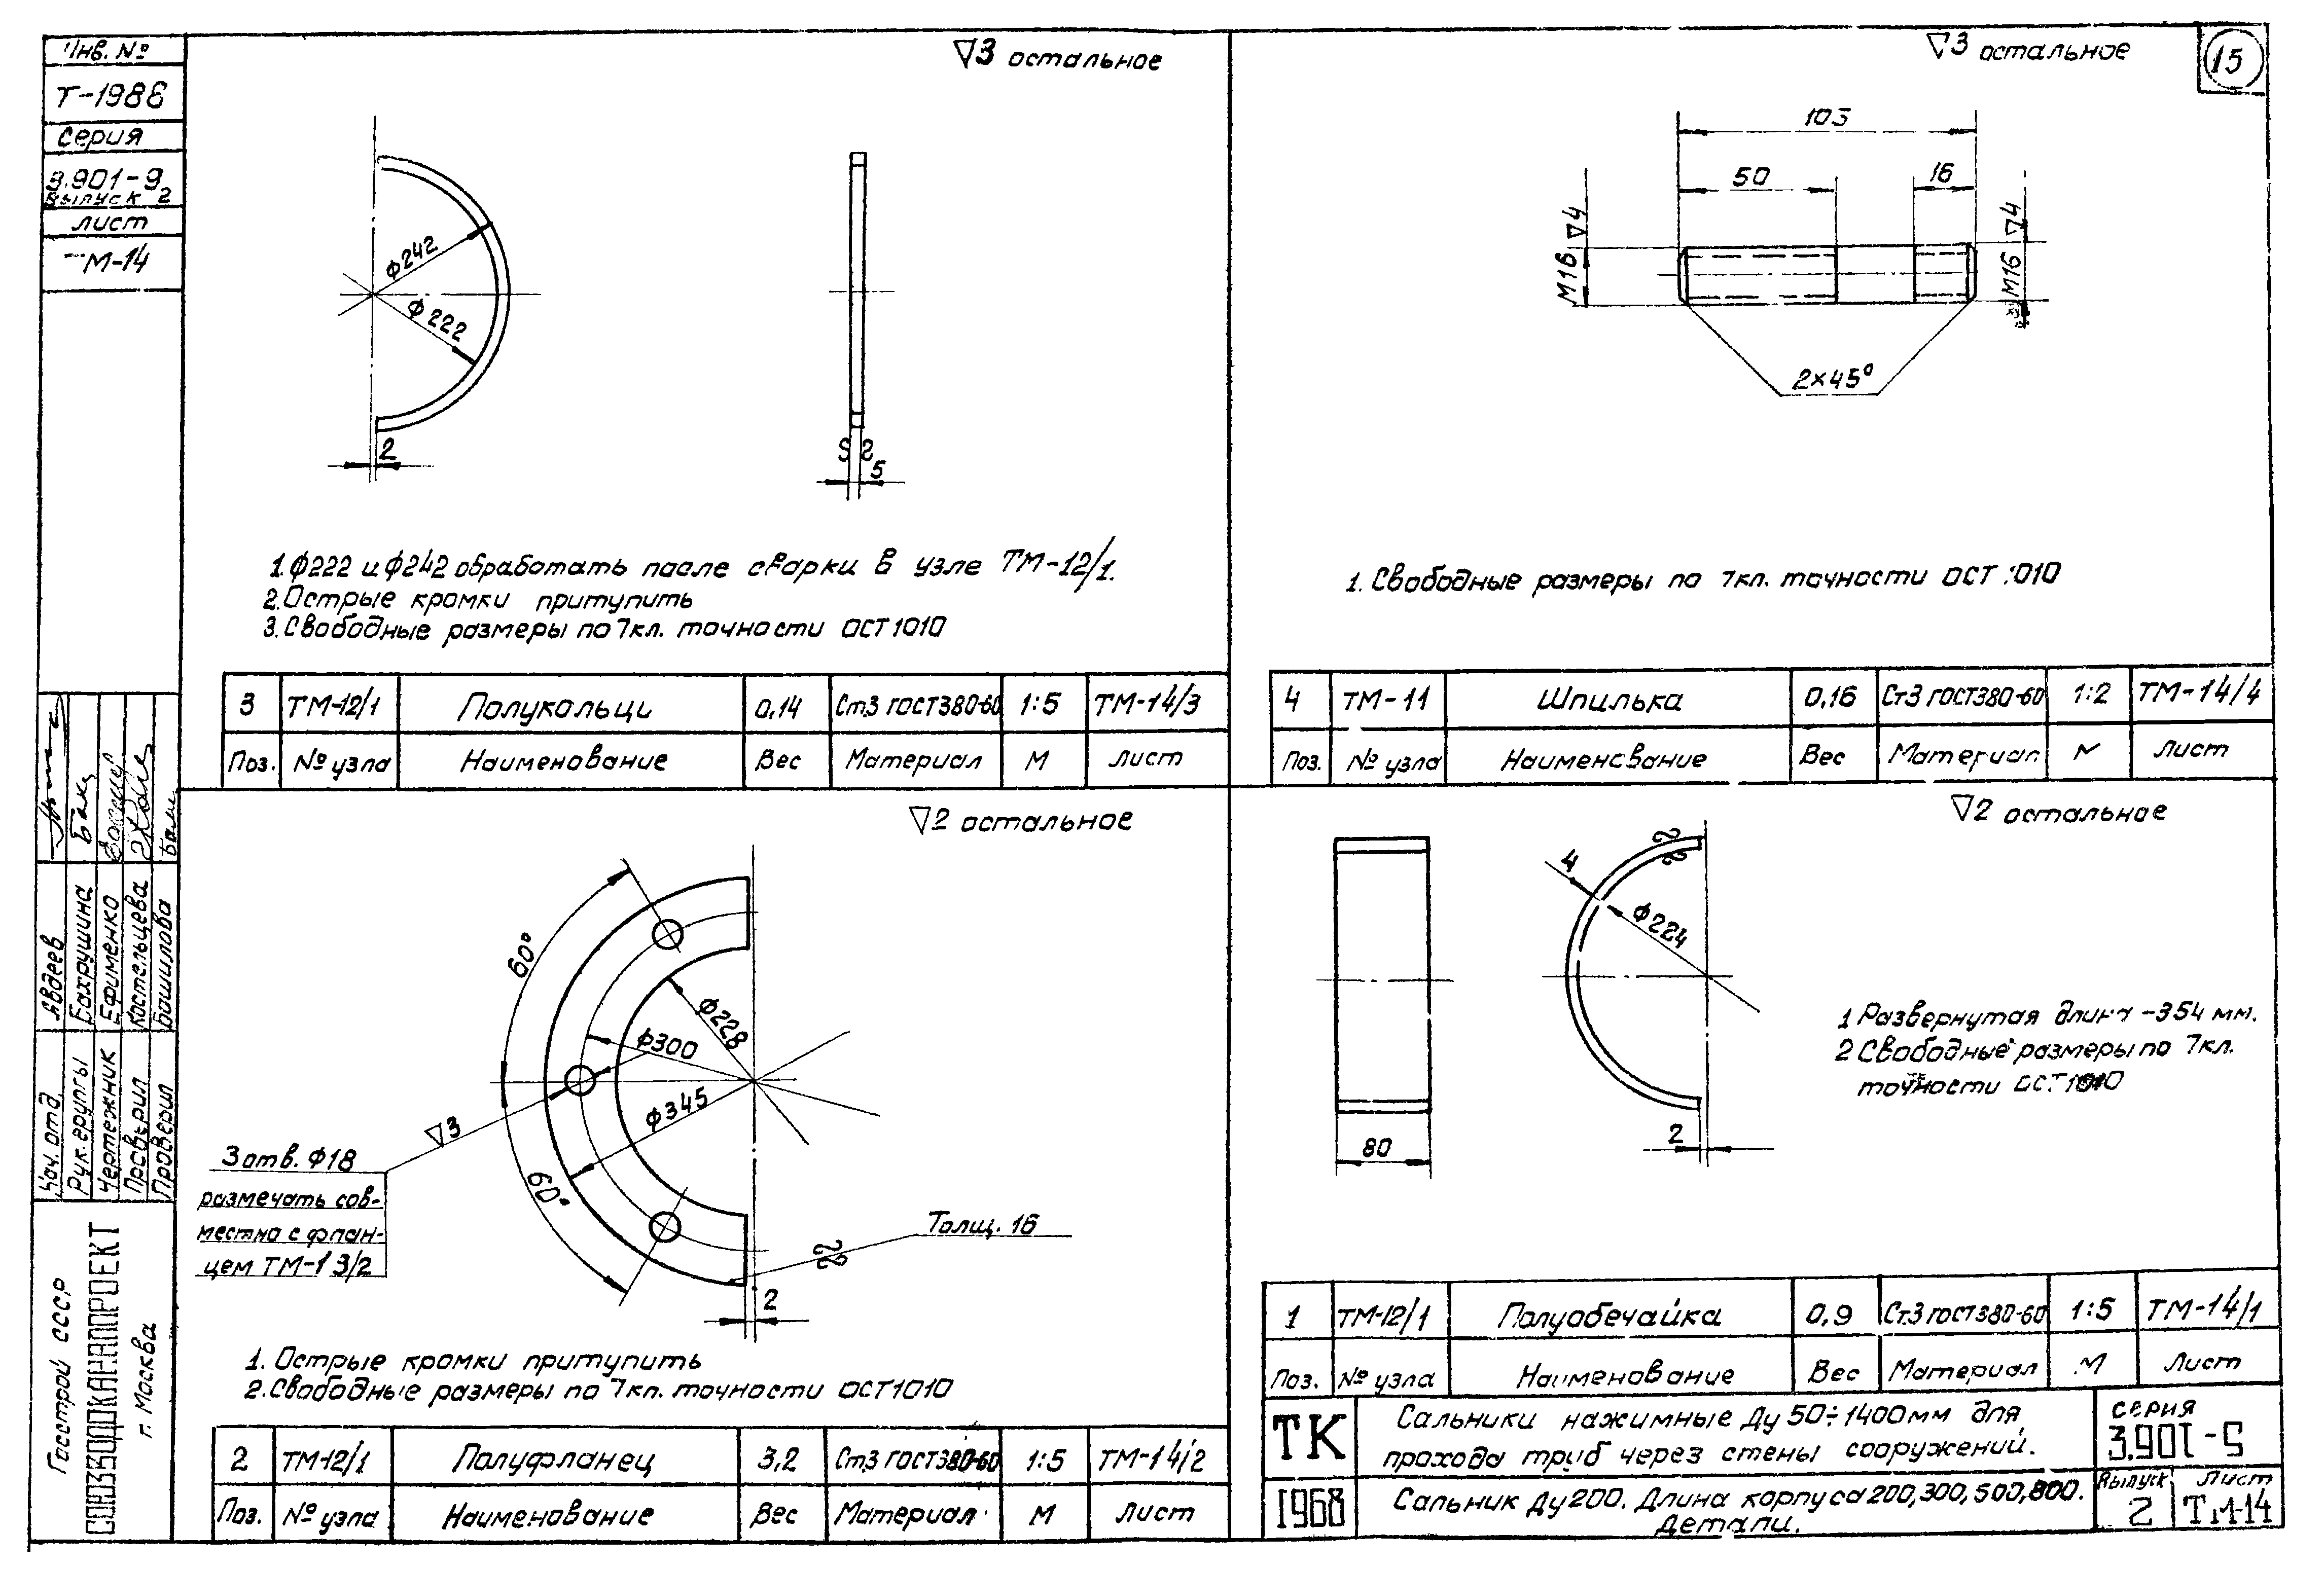 Инв. №
Т-1988
серия
3.901-9
Выпуск 2
лист
ТМ-14
▽3 остальное
ϕ242
ϕ222
2
5
1. ϕ222 и ϕ242 обработать после сварки в узле ТМ-12/1.
2. Острые кромки притупить
3. Свободные размеры по 7кл. точности ОСТ 1010
3 ТМ-12/1 Полукольци 0,14 Ст.3 ГОСТ380-60 1:5 ТМ-14/3
Поз. № узла Наименование Вес Материал М Лист
▽3 остальное
15
103
50
16
М16 ▽4
М16 ▽4
2×45°
1. Свободные размеры по 7кл. точности ОСТ 1010
4 ТМ-11 Шпилька 0,16 Ст3 ГОСТ380-60 1:2 ТМ-14/4
Поз. № узла Наименование Вес Материал М Лист
▽2 остальное
60°
60°
ϕ228
ϕ300
ϕ345
▽3
3 отв. ϕ18
размечать сов-
местно с флан-
цем ТМ-13/2
Толщ. 16
2
1. Острые кромки притупить
2. Свободные размеры по 7кл. точности ОСТ1010
2 ТМ-12/1 Полуфланец 3,2 Ст.3 ГОСТ380-60 1:5 ТМ-14/2
Поз. № узла Наименование Вес Материал М Лист
▽2 остальное
4
ϕ224
80
2
1 Развернутая длина -354 мм.
2 Свободные размеры по 7кл.
точности ОСТ 1010
1 ТМ-12/1 Полуобечайка 0,9 Ст.3 ГОСТ380-60 1:5 ТМ-14/1
Поз. № узла Наименование Вес Материал М Лист
ТК
1968
Сальники нажимные Ду 50÷1400мм для
прохода труб через стены сооружений.
Сальник Ду200. Длина корпуса 200,300,500,800.
Детали.
серия
3.901-9
Выпуск Лист
2 ТМ-14
Нач. отд. Авдеев
Рук. группы Бахрушина
Чертежник Ефименко
Костельцева
Проверил Башилова
Госстрой СССР
СОЮЗВОДОКАНАЛПРОЕКТ
г. Москва